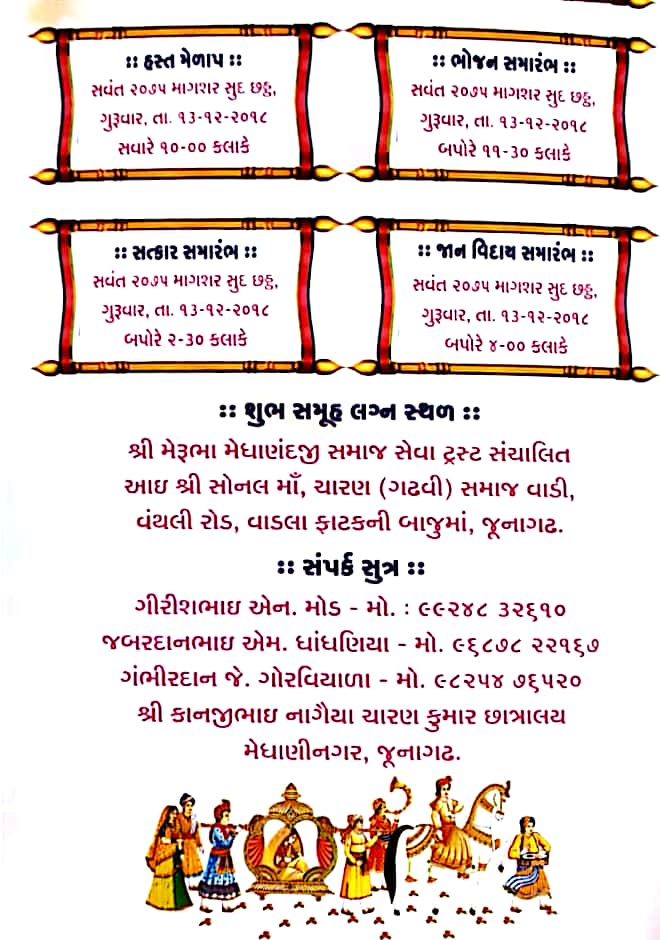 :: હસ્ત મેળાપ ::
સવંત ૨૦૭૫ માગશર સુદ છઠ્ઠ,
ગુરૂવાર, તા. ૧૩-૧૨-૨૦૧૮
સવારે ૧૦-૦૦ કલાકે
:: ભોજન સમારંભ ::
સવંત ૨૦૭૫ માગશર સુદ છઠ્ઠ,
ગુરૂવાર, તા. ૧૩-૧૨-૨૦૧૮
બપોરે ૧૧-૩૦ કલાકે
:: સત્કાર સમારંભ ::
સવંત ૨૦૭૫ માગશર સુદ છઠ્ઠ,
ગુરૂવાર, તા. ૧૩-૧૨-૨૦૧૮
બપોરે ૨-૩૦ કલાકે
:: જાન વિદાય સમારંભ ::
સવંત ૨૦૭૫ માગશર સુદ છઠ્ઠ,
ગુરૂવાર, તા. ૧૩-૧૨-૨૦૧૮
બપોરે ૪-૦૦ કલાકે
:: શુભ સમૂહ લગ્ન સ્થળ ::
શ્રી મેરૂભા મેધાણંદજી સમાજ સેવા ટ્રસ્ટ સંચાલિત
આઇ શ્રી સોનલ માઁ, ચારણ (ગઢવી) સમાજ વાડી,
વંથલી રોડ, વાડલા ફાટકની બાજુમાં, જૂનાગઢ.
:: સંપર્ક સુત્ર ::
ગીરીશભાઇ એન. મોડ - મો. : ૯૯૨૪૮ ૩૨૬૧૦
જબરદાનભાઇ એમ. ધાંધણિયા - મો. ૯૬૮૭૮ ૨૨૧૬૭
ગંભીરદાન જે. ગોરવિયાળા - મો. ૯૮૨૫૪ ૭૬૫૨૦
શ્રી કાનજીભાઇ નાગૈયા ચારણ કુમાર છાત્રાલય
મેધાણીનગર, જૂનાગઢ.